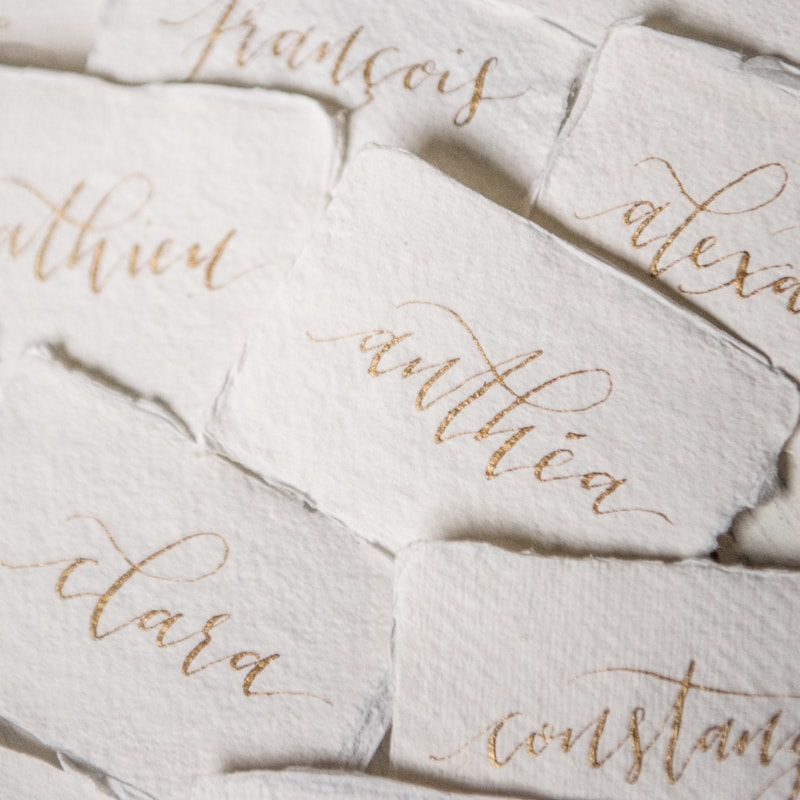 françois
athieu
aléxa
anthéa
clara
constan